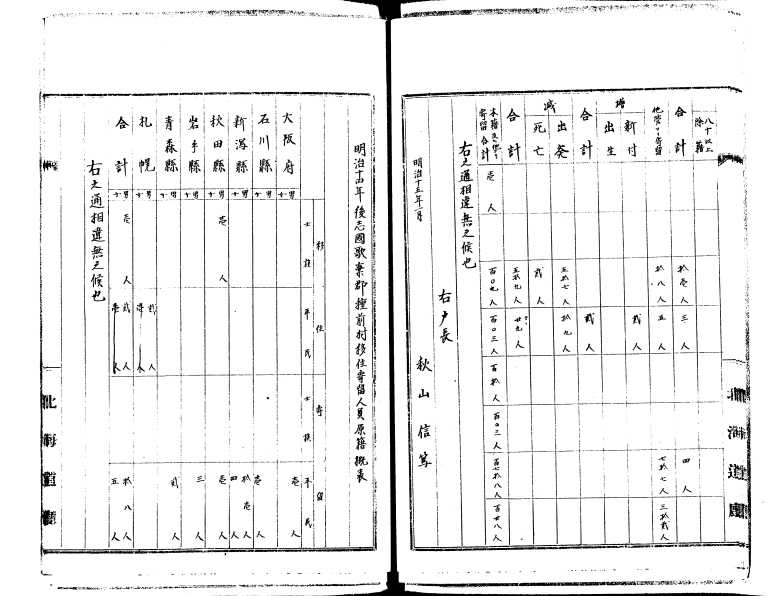 八十以上
除籍
合計 拾壱人 三人 四人
他管ヨリ寄留 拾八人 五人 七拾七人 三拾弐人
増
新付 弐人
出生
合計 弐人
減
出発 五拾七人 拾九人
死亡 弐人
合計 五拾九人 廿九人
寄留合計 壱人 百〇九人 百〇三人 百拾人 百〇三人 百七拾八人 百廿八人
右之通相違無之候也
明治十五年一月
右戸長
秋山信篤
明治十四年後志國歌棄郡種前村移住寄留人員原籍概表
移住
士族
平民
寄留
士族
平民
大阪府 男 女 壱人
石川縣 男 女 壱人
新潟縣 男 女 拾壱人 四人
秋田縣 男 女 壱人 壱人
岩手縣 男 女 三人
青森縣 男 女 弐人
札幌 男 女 弐人 壱人
合計 男 女 壱人 弐人 壱人 拾八人 五人
右之通相違無之候也
北海道廳
北海道廳